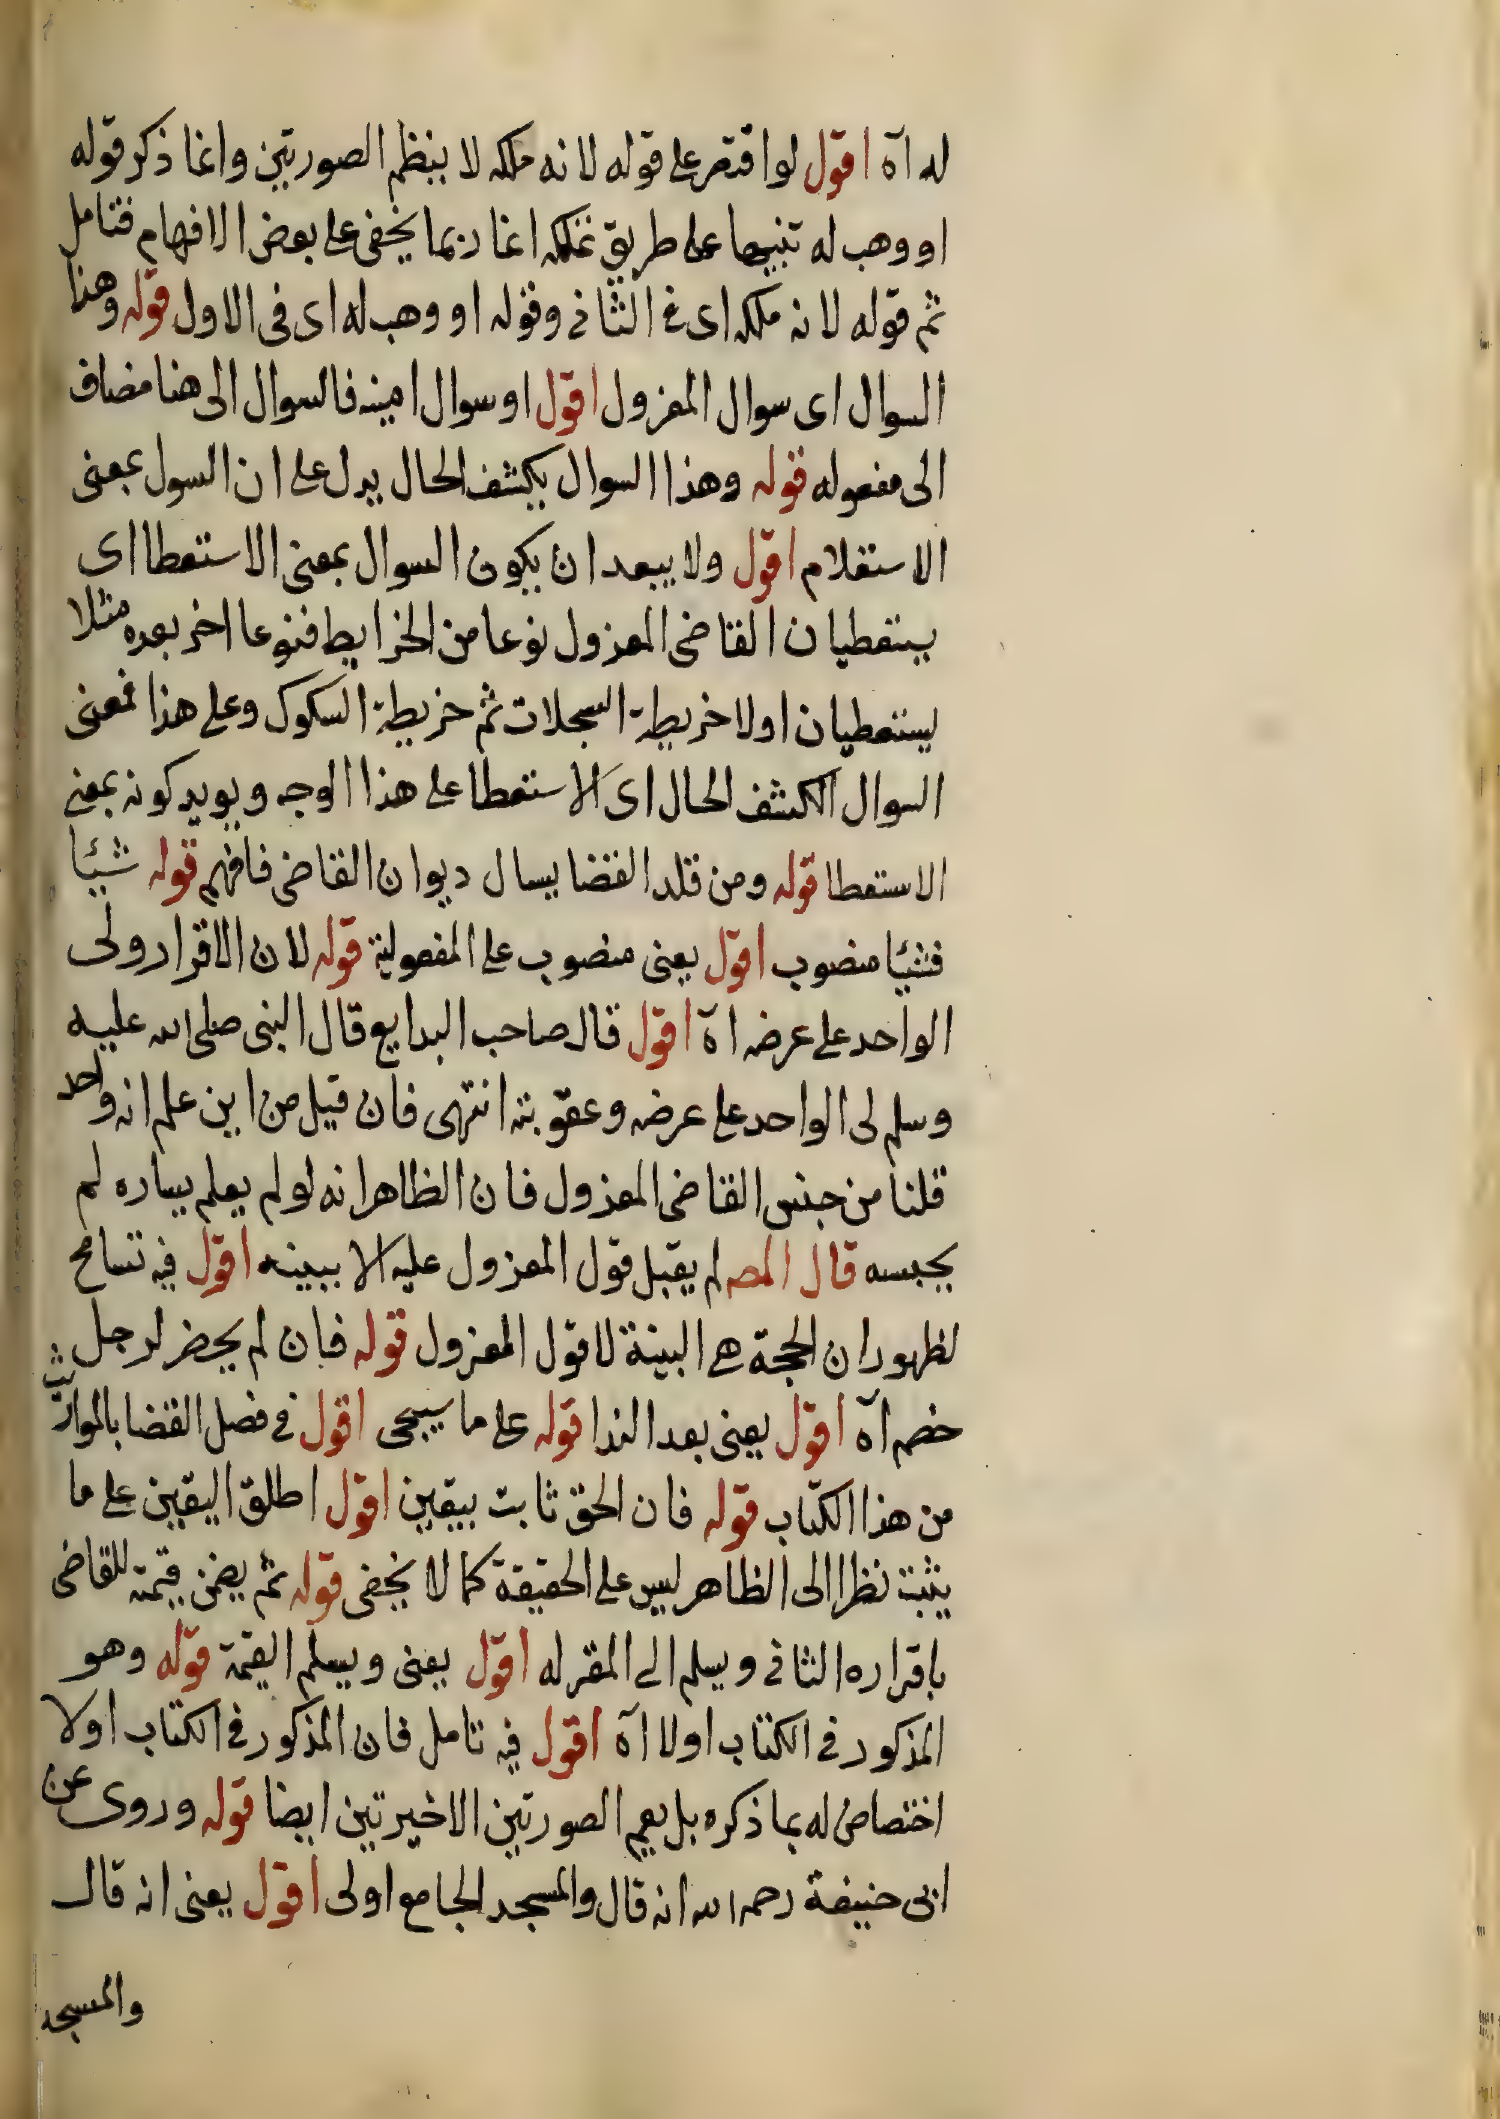 له آه اقول لو اقتصر على قوله لانه ملكه لا ينتظم الصورتين وانما ذكر قوله
او وهب له تنبيها على طريق تملكه انما ربما يخفى على بعض الافهام فتامل
ثم قوله لانه ملكه اى فى الثانى وقوله او وهب له اى فى الاول قوله وهذا
السوال اى سوال المعزول اقول او سوال امينه فالسوال الى هنا مضاف
الى مفعوله قوله وهذا السوال يكشف الحال يدل على ان السول بمعنى
الاستعلام اقول ولا يبعد ان يكون السوال بمعنى الاستعطا اى
يستعطيان القاضى المعزول نوعا من الخرايط فنوعا اخر بعده مثلا
يستعطيان اولا خريطة السجلات ثم خريطة السكوك وعلى هذا فمعنى
السوال الكشف الحال اى الاستعطا على هذا الوجه ويويد كونه بمعنى
الاستعطا قوله ومن قلد القضا يسال ديوان القاضى فافهم قوله شيئا
فشيئا منصوب اقول يعنى منصوب على المفعولية قوله لان الاقرار ولى
الواحد على عرضه آه اقول قال صاحب البدايع قال النبى صلى الله عليه
وسلم لى الواحد على عرضه وعقوبته انتهى فان قيل من اين علم انه واحد
قلنا من جنس القاضى المعزول فان الظاهر انه لو لم يعلم يساره لم
يحبسه قال المص لم يقبل قول المعزول عليه الا ببينه اقول فيه تسامح
لظهور ان الحجة هى البينة لا قول المعزول قوله فان لم يحضر لرجل
خصم آه اقول يعنى بعد الندا قوله على ما سيجى اقول فى فصل القضا بالمواريث
من هذا الكتاب قوله فان الحق ثابت بيقين اقول اطلق اليقين على ما
يثبت نظرا الى الظاهر ليس على الحقيقة كما لا يخفى قوله ثم يضمن قيمته للقاضى
باقراره الثانى ويسلم الى المقر له اقول يعنى ويسلم القيمة قوله وهو
المذكور فى الكتاب اولا آه اقول فيه تامل فان المذكور فى الكتاب اولا
اختصاص له بما ذكره بل يعم الصورتين الاخيرتين ايضا قوله وروى عن
ابى حنيفة رحمه الله انه قال والمسجد الجامع اولى اقول يعنى انه قال
والمسجد